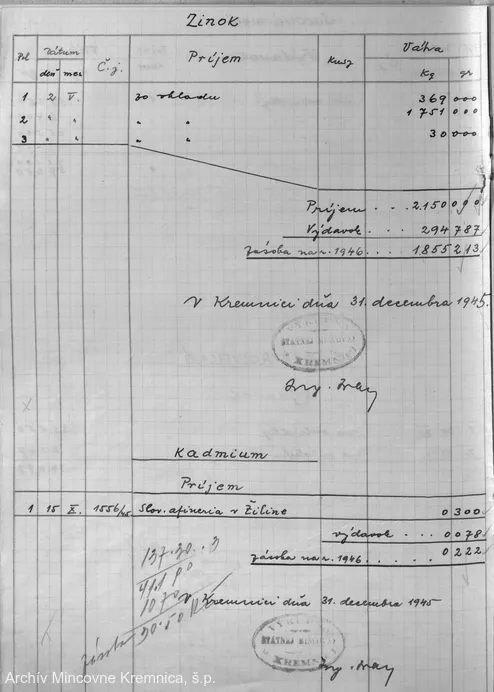 Zinok
Pol dátum Č.j. Príjem Kusy Váha
deň mes Kg gr
1 2 V. zo skladu 369 000
2 " " " " 1 751 000
3 " " " " 30 000
Príjem . . . 2.150 000
Výdavok . . . 294 787
zásoba na r. 1946 . . . 1855 213
V Kremnici dňa 31. decembra 1945.
STÁTNEJ MINCOVNE
KREMNICA
Ing.
Kadmium
Príjem
1 15 X. 1556/45 Slov. afineria v Žiline 0 300
výdavok . . . . 0 078
zásoba na r. 1946 . . . . 0 222
137.30
V Kremnici dňa 31. decembra 1945
zásoba
STÁTNEJ MINCOVNE
KREMNICA
Ing.
Archív Mincovne Kremnica, š.p.